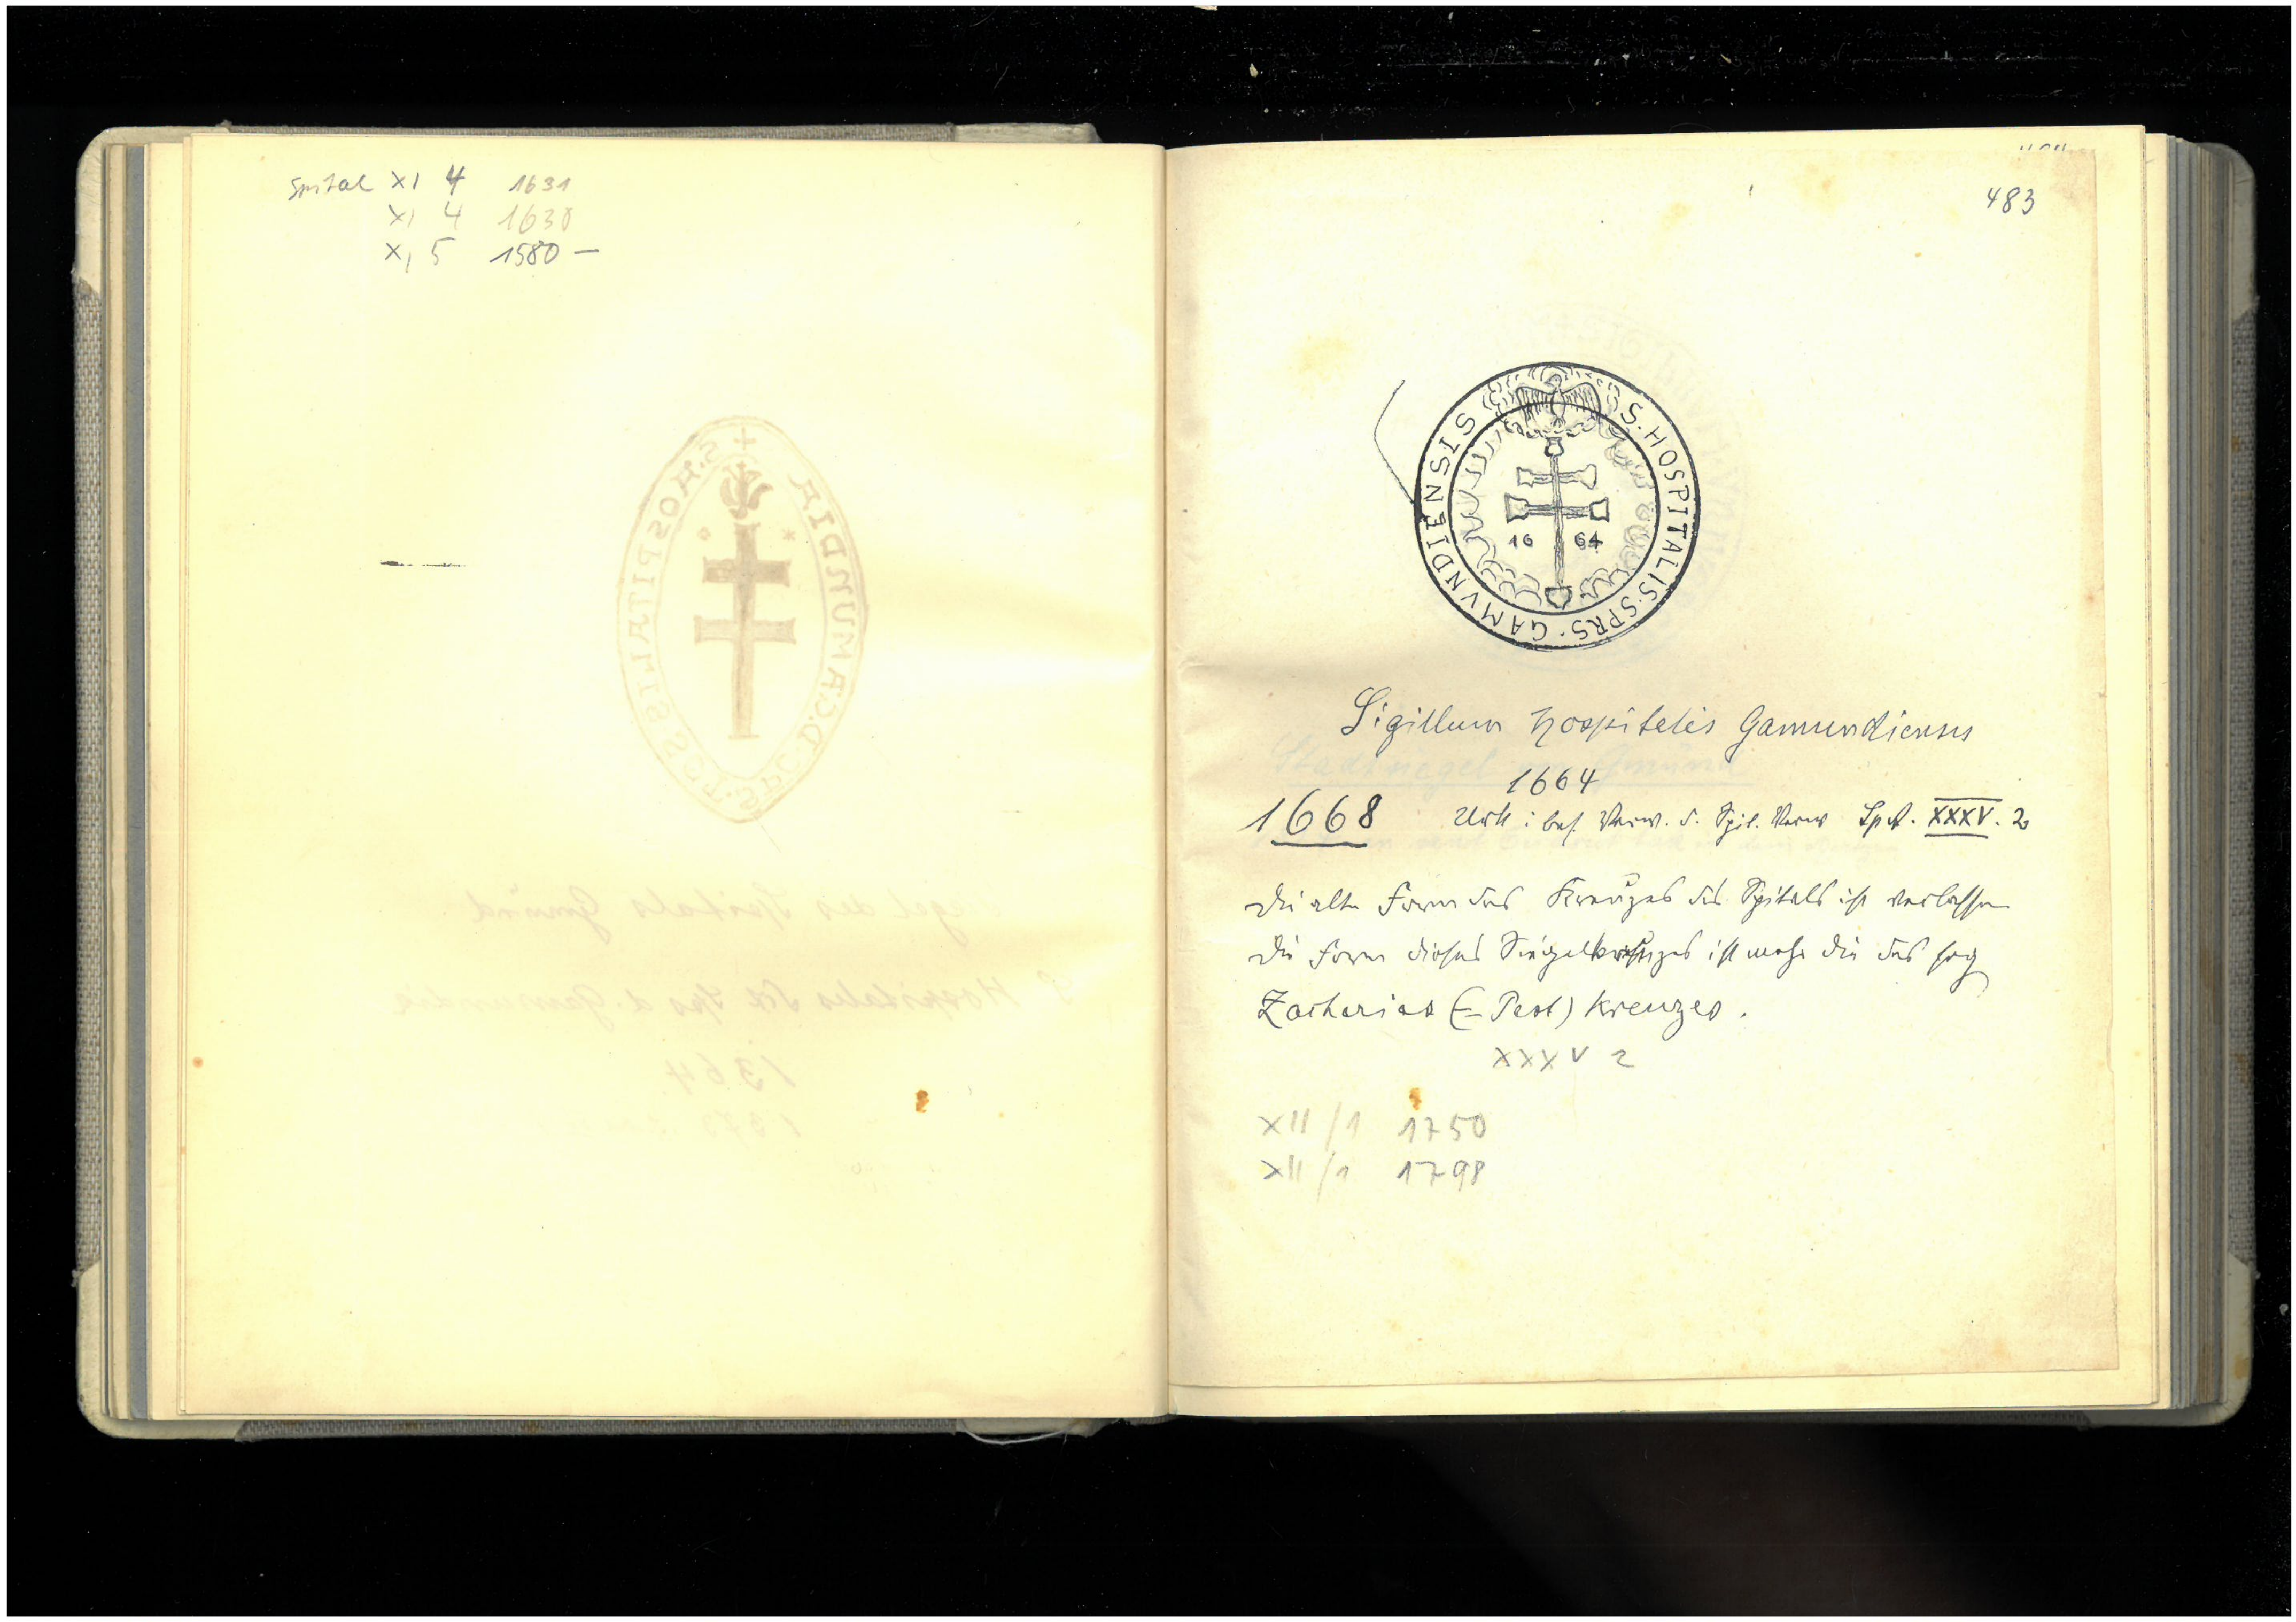 Spital XI 4 1631
XI 4 1630
XI 5 1580 —
483
S. HOSPITALIS · SPRS · GAMVNDIENSIS
16 64
Sigillum Hospitalis Gamundiensis
1664
1668 Urk i bes. Verw. d. Spit. Verw Spit. XXXV. 2
Die alte Form des Kreuzes des Spitals ist verlassen
Die Form dieses Siegelkreuzes ist mehr die des sog
Zacharias (= Pest) Kreuzes.
XXXV 2
XII/1 1750
XII/1 1798